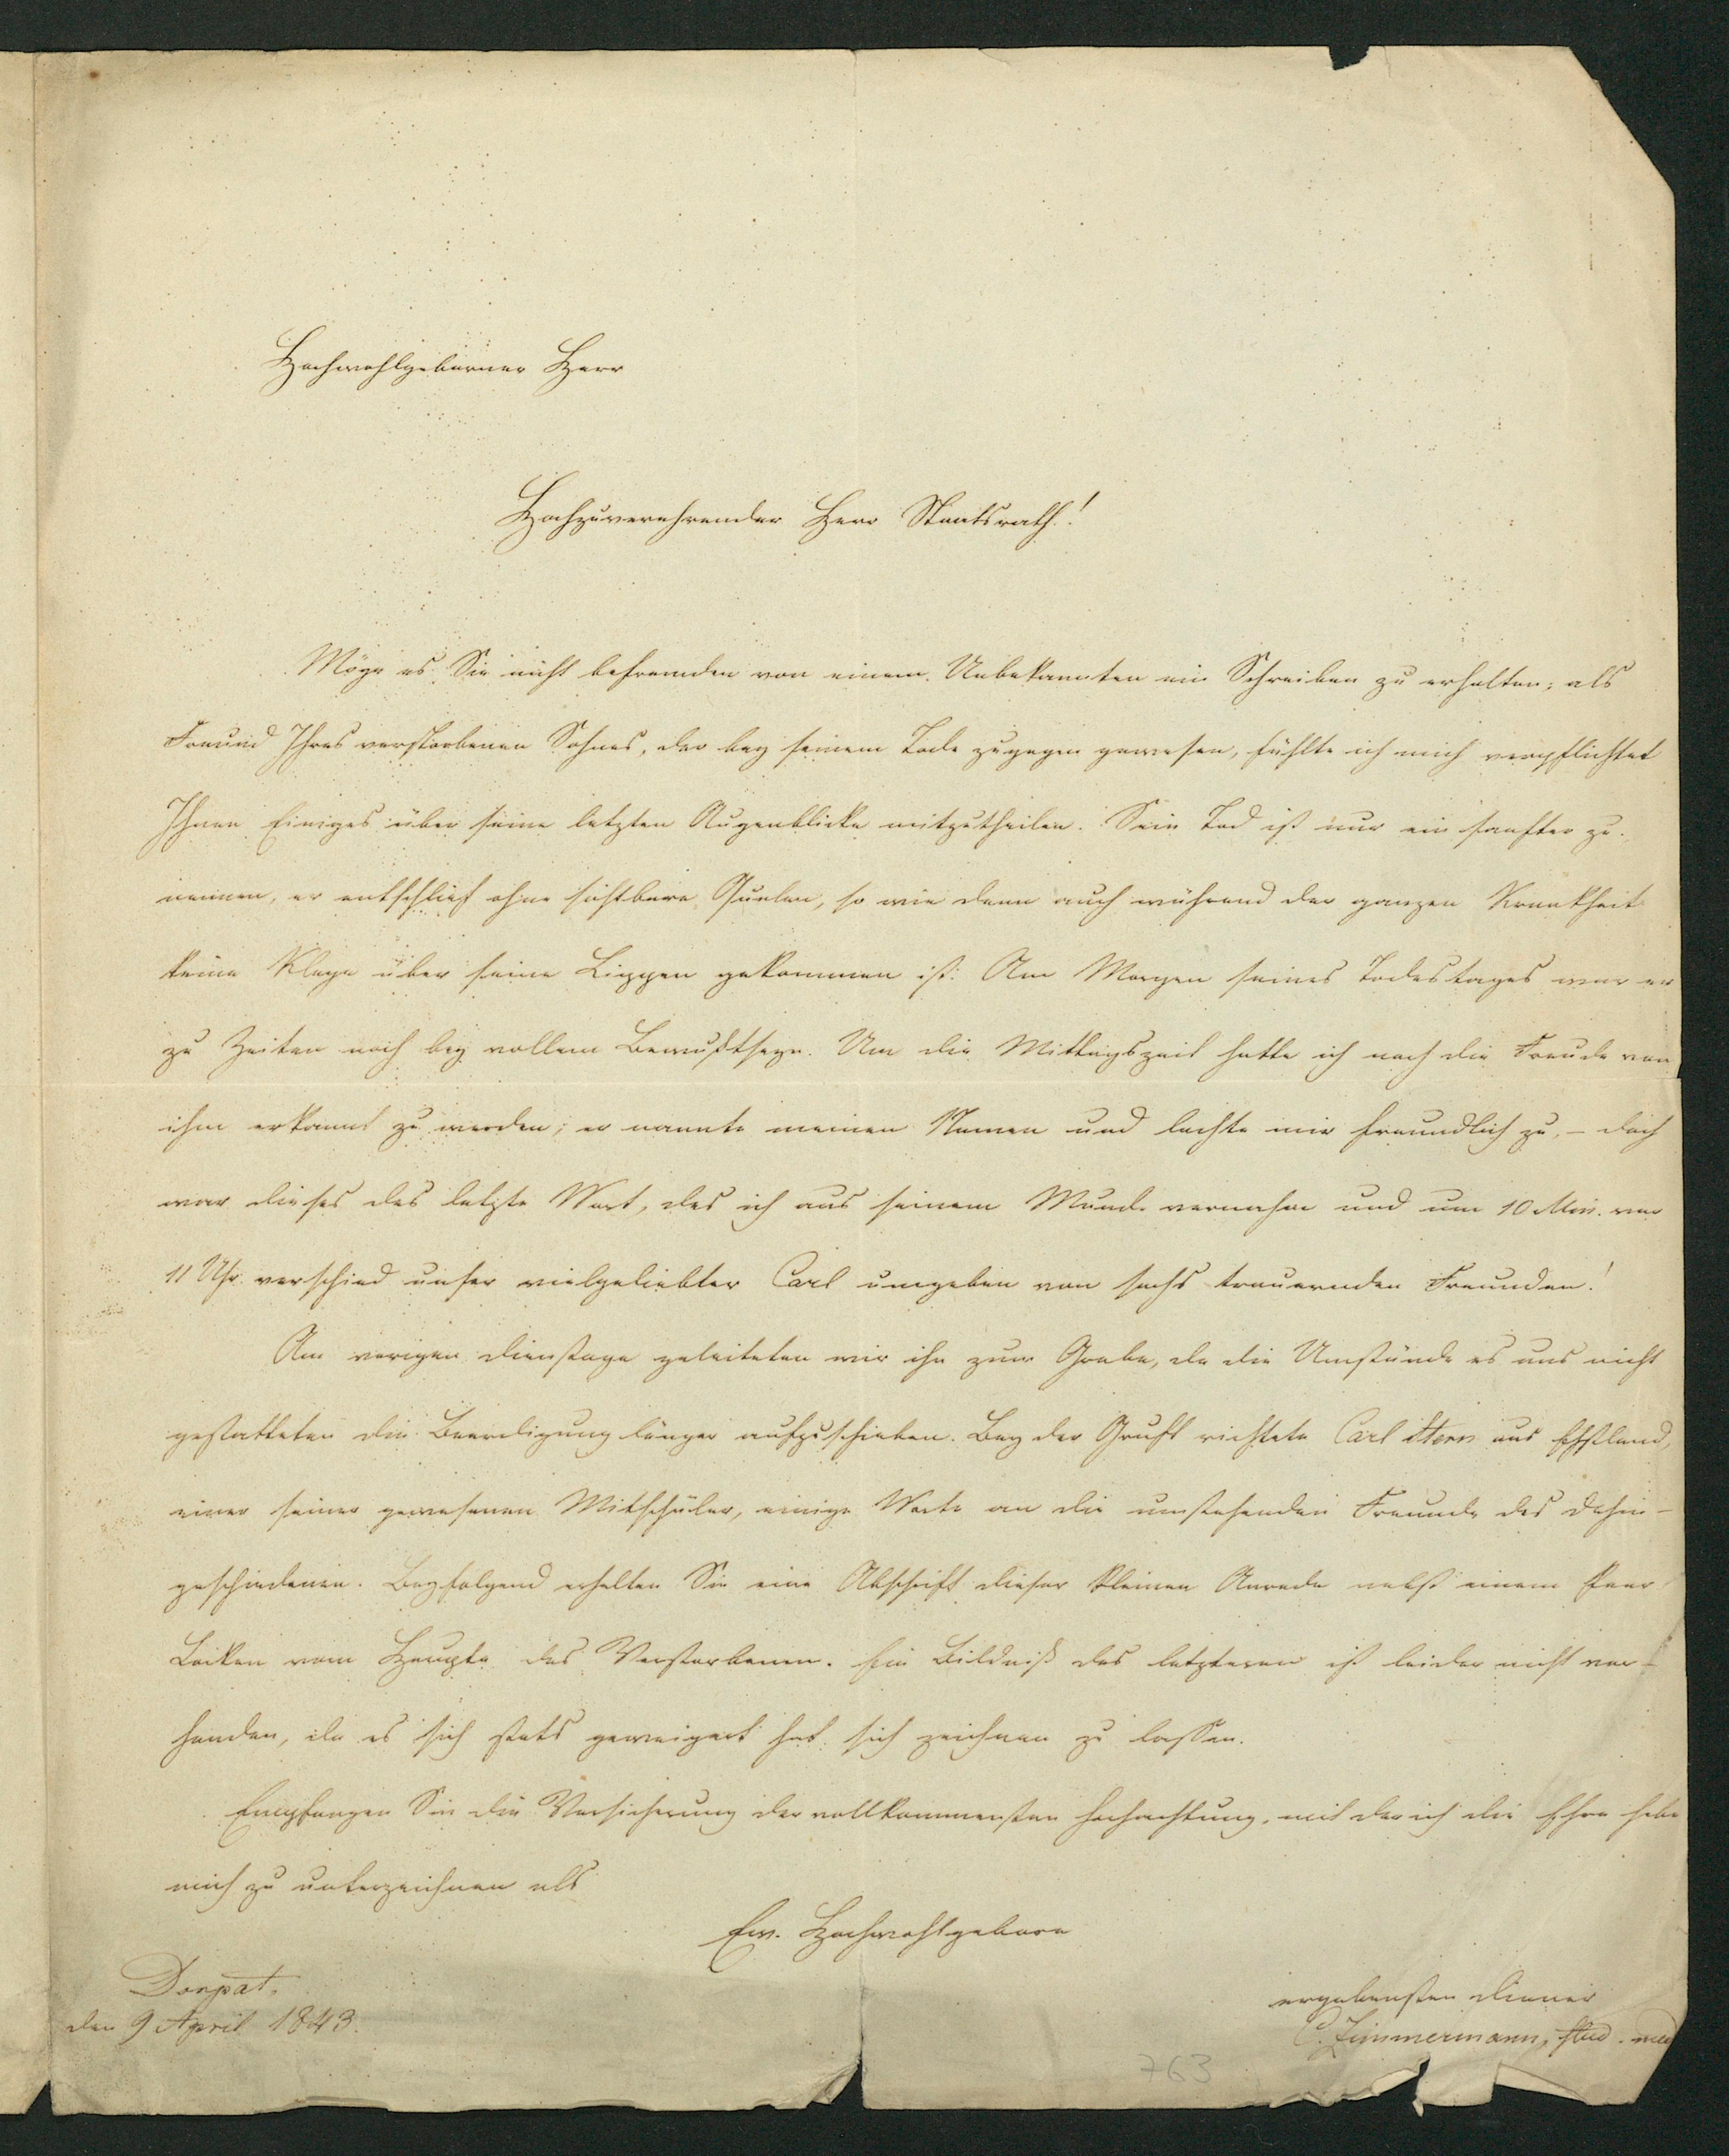 Hochwohlgeborner Herr
Hochzuverehrender Herr Staatsrath!
Möge es Sie nicht befremden von einem Unbekannten ein Schreiben zu erhalten; als
Freund Ihres verstorbenen Sohnes, der bey seinem Tode zugegen gewesen, fühlte ich mich verpflichtet
Ihnen Einiges über seine letzten Augenblicke mitzutheilen. Sein Tod ist nur ein sanfter zu
nennen, er entschlief ohne sichtbare Qualen, so wie denn auch während der ganzen Krankheit
keine Klage über seine Lippen gekommen ist. Am Morgen seines Todestages war er
zu Zeiten noch bey vollem Bewußtseyn. Um die Mittagszeit hatte ich noch die Freude von
ihm erkannt zu werden; er nannte meinen Namen und lachte mir freundlich zu, – doch
war dieses das letzte Wort, das ich aus seinem Munde vernahm und um 10 Min. vor
11 Uhr verschied unser vielgeliebter Carl umgeben von sechs trauernden Freunden!
Am vorigen Dienstage geleiteten wir ihn zum Grabe, da die Umstände es uns nicht
gestatteten die Beerdigung länger aufzuschieben. Bey der Gruft richtete Carl Stern aus Ehstland,
einer seiner gewesenen Mitschüler, einige Worte an die umstehenden Freunde des Dahin-
geschiedenen. Beyfolgend erhalten Sie eine Abschrift dieser kleinen Anrede nebst einem Paar
Locken vom Haupte des Verstorbenen. Ein Bildniß des letzteren ist leider nicht vor-
handen, da er sich stets geweigert hat sich zeichnen zu lassen.
Empfangen Sie die Versicherung der vollkommensten Hochachtung, mit der ich die Ehre habe
mich zu unterzeichnen als
Ew. Hochwohlgeborn
Dorpat,
den 9 April 1843.
ergebensten Diener
C. Zimmermann, stud. med
763